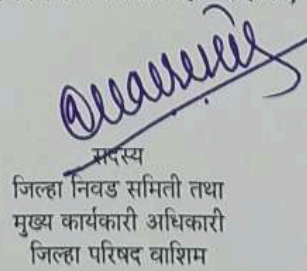 सदस्य
जिल्हा निवड समिती तथा
मुख्य कार्यकारी अधिकारी
जिल्हा परिषद वाशिम